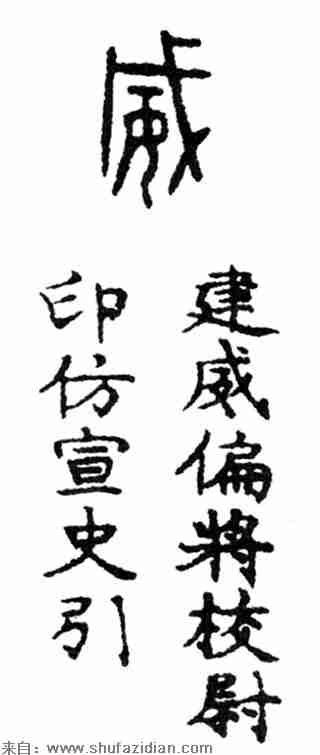 威
建威偏將校尉
印仿宣史引
来自：www.shufazidian.com